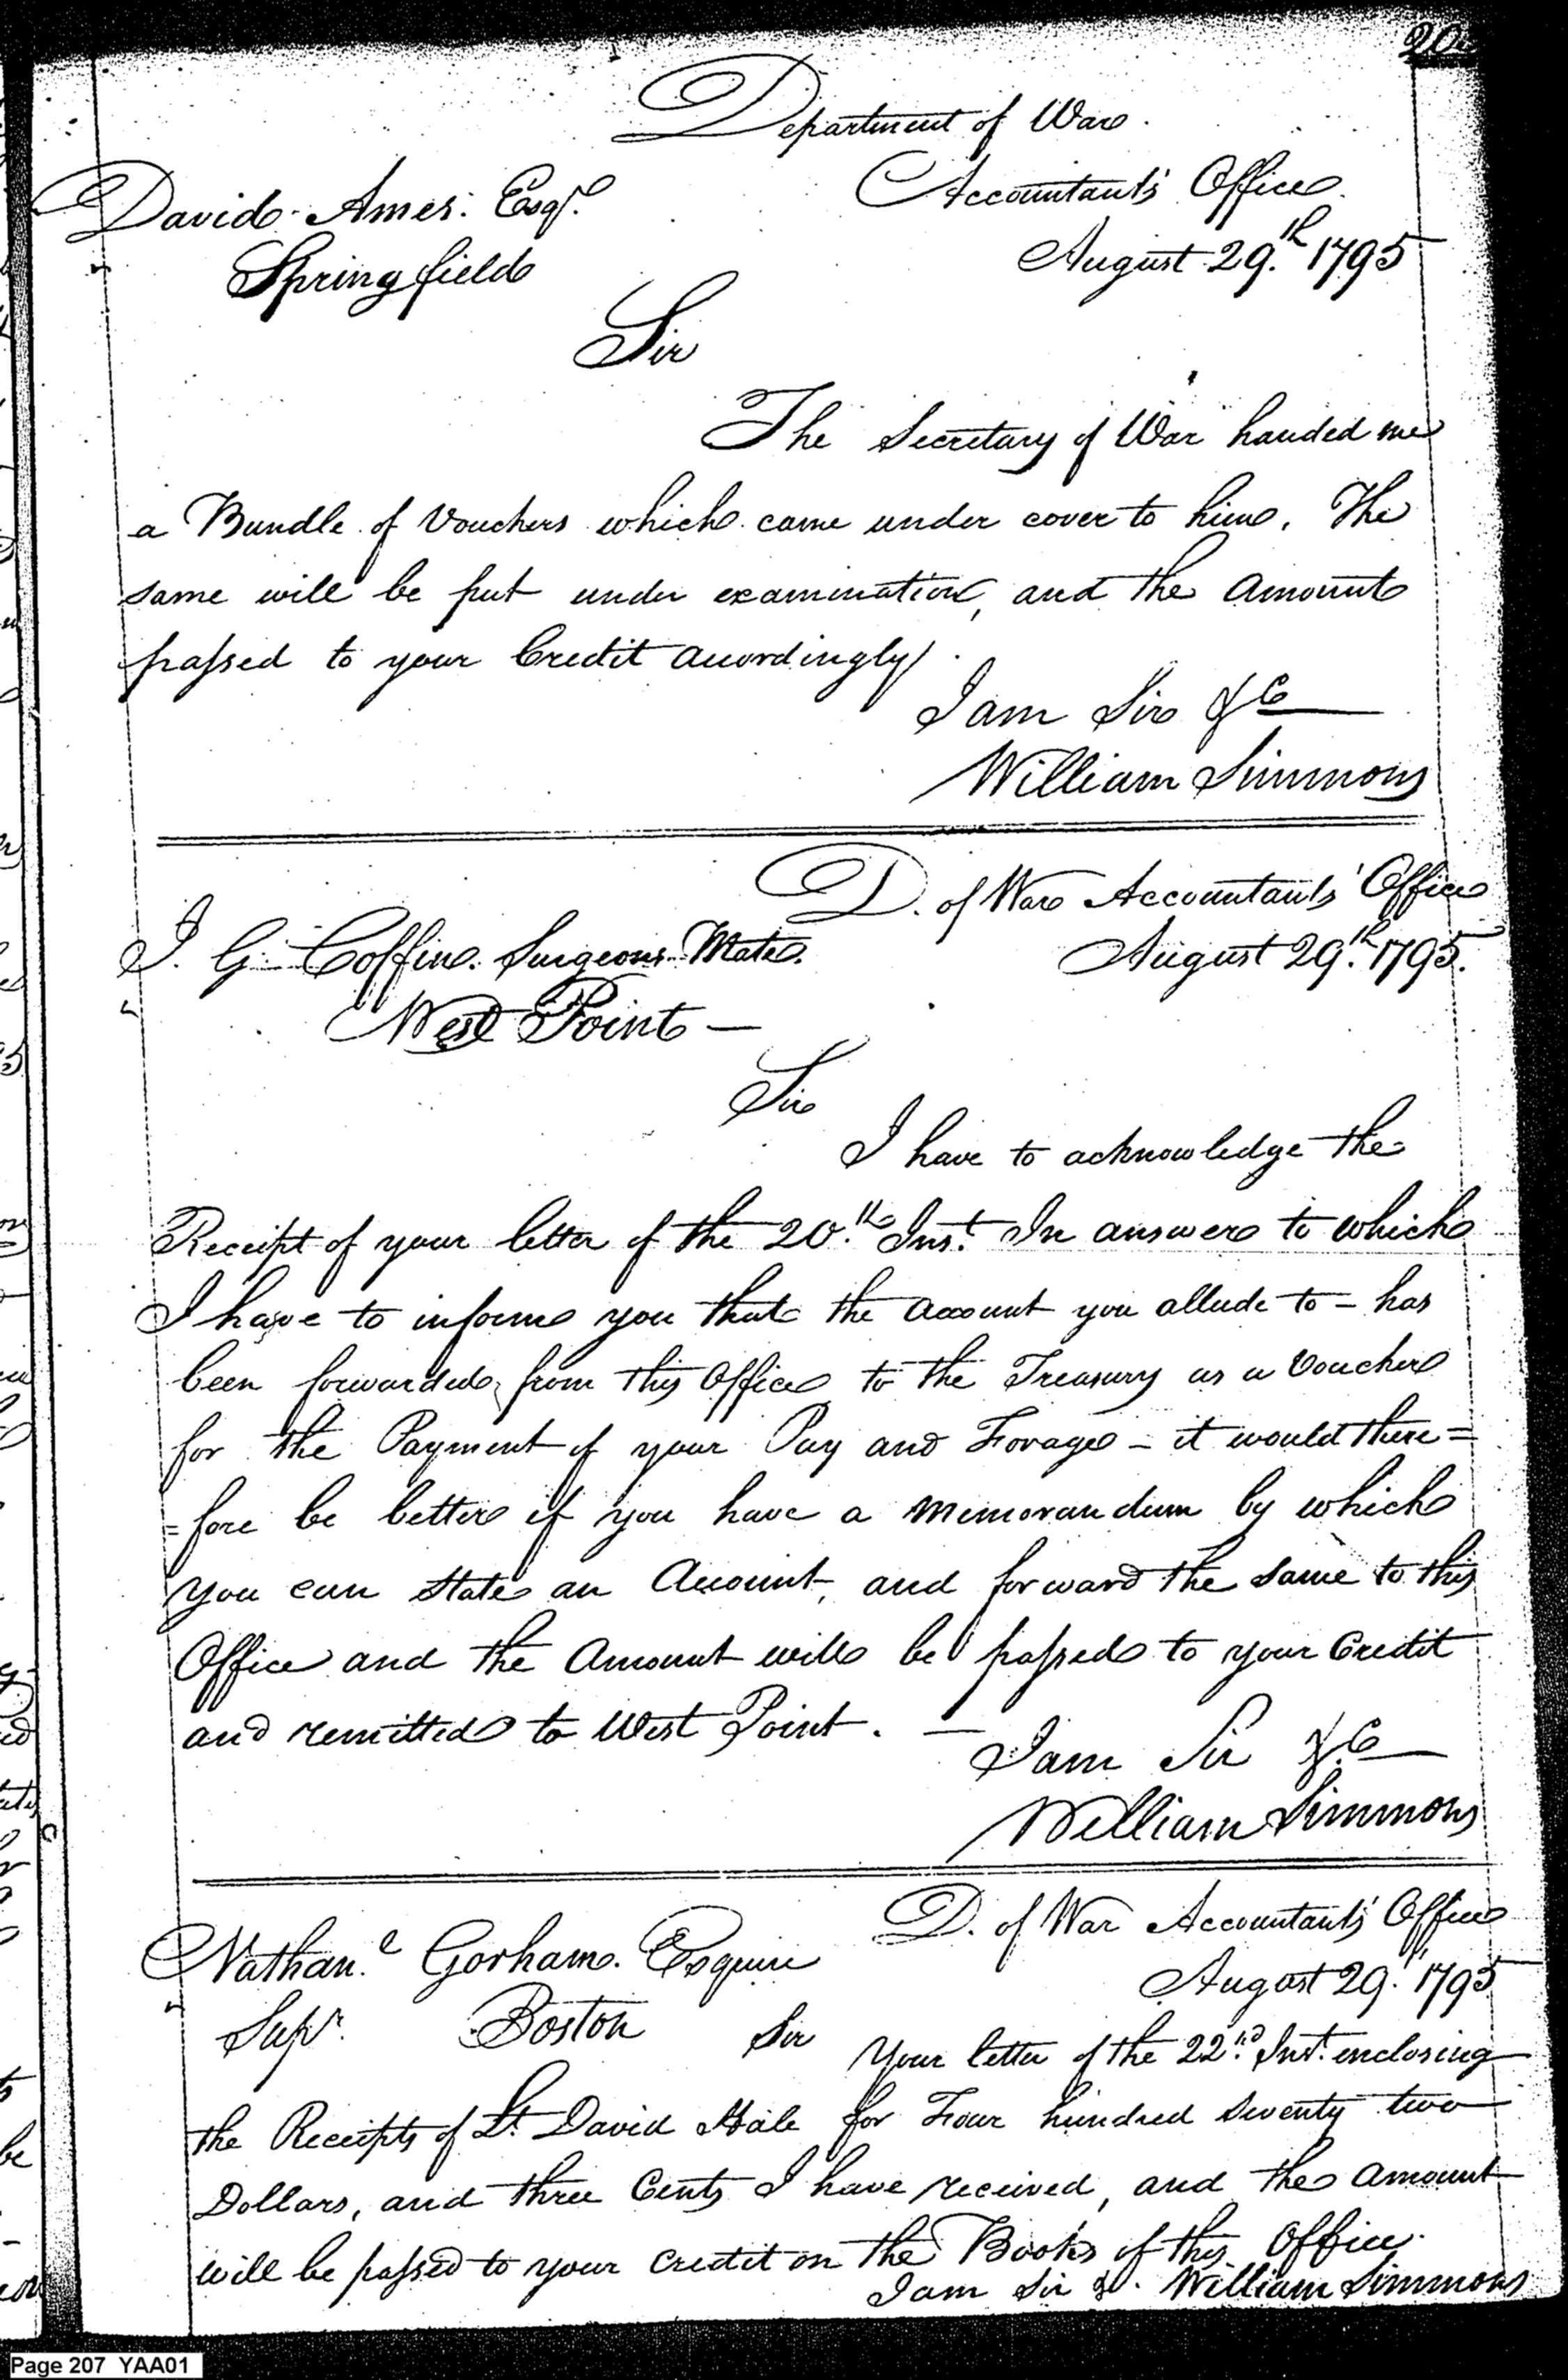 Department of War.
Accountants' Office.
David Ames. Esqr.
August 29.th 1795
Springfield
Sir
The Secretary of War handed me
a Bundle of Vouchers which came under cover to him. The
same will be put under examination, and the Amount
passed to your Credit accordingly.
I am Sir &C
William Simmons
D. of War Accountants' Office
August 29.th 1795.
J. G. Coffin. Surgeons Mate.
West Point —
Sir
I have to acknowledge the
Receipt of your letter of the 20.th Inst. In answer to which
I have to inform you that the account you allude to – has
been forwarded, from this Office to the Treasury as a Voucher
for the Payment of your Pay and Forage – it would there=
=fore be better if you have a memorandum by which
you can state an Account, and forward the same to this
Office and the Amount will be passed to your Credit
and remitted to West Point. —
I am Sir &C
William Simmons
D. of War Accountants' Office
August 29. 1795
Nathan.l Gorham. Esquire
Supr. Boston
Sir Your letter of the 22.nd Inst. enclosing
the Receipts of Lt. David Hale for Four hundred Seventy two
Dollars, and three Cents I have received, and the amount
will be passed to your credit on the Books of this Office.
I am Sir &c. William Simmons
Page 207 YAA01